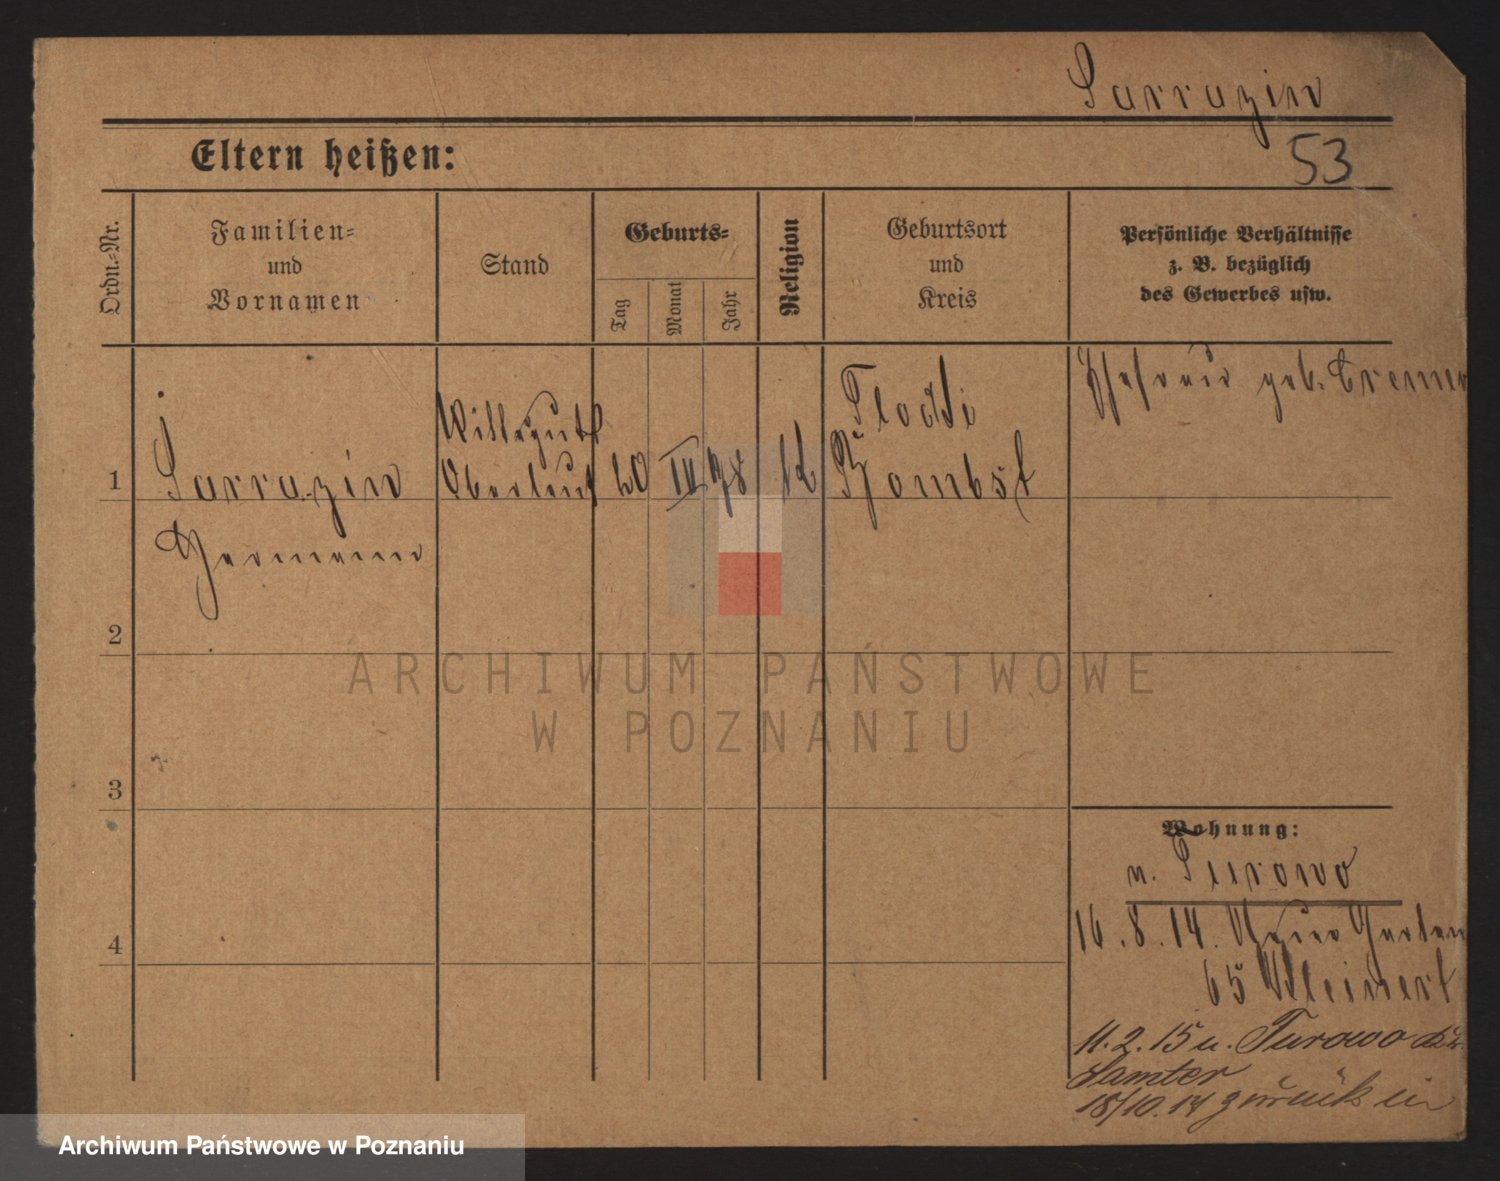 Sarrazin
Eltern heißen:
53
Ordn.-Nr.
Familien-
und
Vornamen
Stand
Geburts-
Tag
Monat
Jahr
Religion
Geburtsort
und
Kreis
Persönliche Verhältnisse
z. B. bezüglich
des Gewerbes usw.
Ehefrau geb. Cremer
1
Sarrazin
Hermann
Oberleut
20
78
Bomst
2
3
4
Wohnung:
n. Turowo
16.8.14. Garten
65 Kleinert
11.2.15 n. Turowo
Samter
18/10.14 zurück
ARCHIWUM PAŃSTWOWE
W POZNANIU
Archiwum Państwowe w Poznaniu